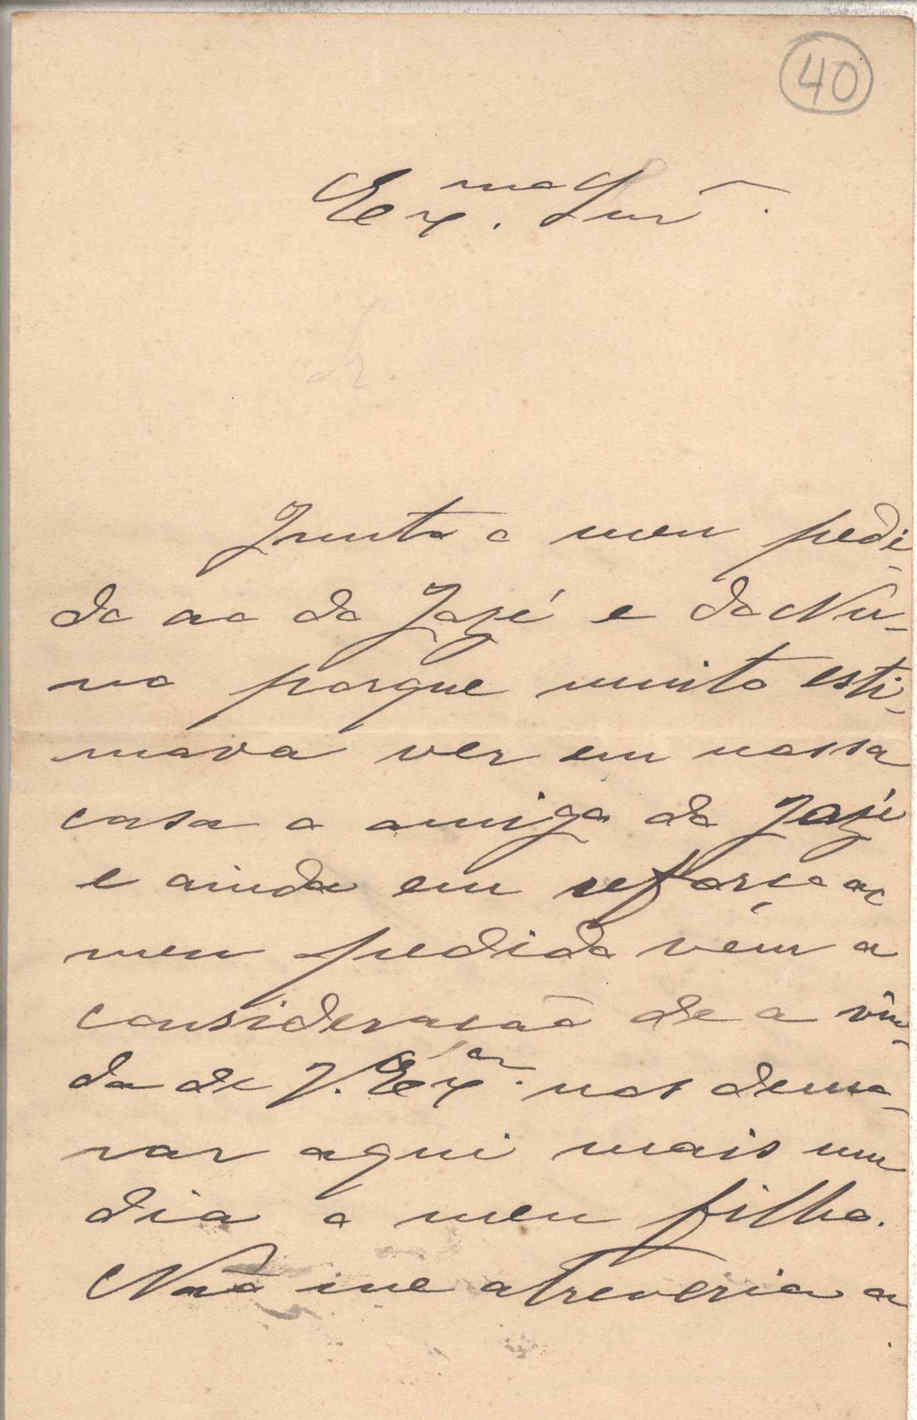 40
Exmo. Snr.
Junto o meu pedi-
do ao do José e do Nu-
no porque muito esti-
mava ver em nossa
casa o amigo do José
e ainda em reforço ao
meu pedido vem a
consideração de a vin-
da de V. Exa. nos demo-
rar aqui mais um
dia o meu filho.
Não me atreveria a